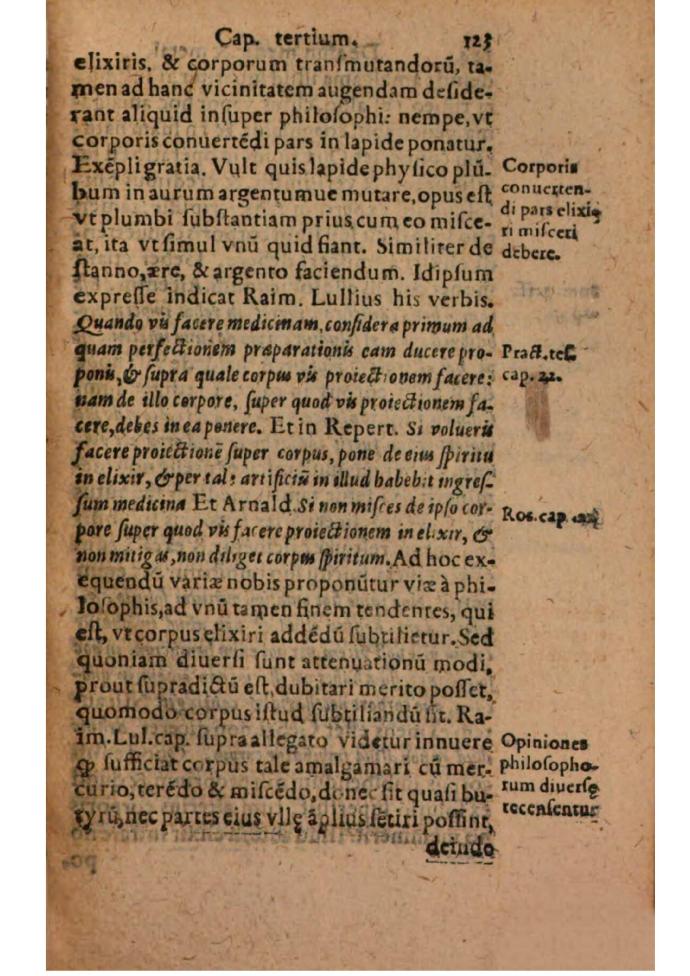 Cap. tertium. 123
elixiris, & corporum tranſmutandorū, ta-
men ad hanc vicinitatem augendam deſide-
rant aliquid inſuper philoſophi: nempe, vt
corporis conuertēdi pars in lapide ponatur.
Exēpli gratia. Vult quis lapide phyſico plū-
bum in aurum argentumue mutare, opus eſt
vt plumbi ſubſtantiam prius cum eo miſce-
at, ita vt ſimul vnū quid fiant. Similiter de
ſtanno, ære, & argento faciendum. Idipſum
expreſſe indicat Raim. Lullius his verbis.
Quando vis facere medicinam, conſidera primum ad
quam perfectionem præparationis eam ducere pro-
ponis, & ſupra quale corpus vis proiectionem facere:
nam de illo corpore, ſuper quod vis proiectionem fa-
cere, debes in ea ponere. Et in Repert. Si volueris
facere proiectionē ſuper corpus, pone de eius ſpiritu
in elixir, & per tale artificiū in illud habebit ingreſ-
ſum medicina Et Arnald. Si non miſces de ipſo cor-
pore ſuper quod vis facere proiectionem in elixir, &
non mitigas, non diliget corpus ſpiritum. Ad hoc ex-
equendū variæ nobis proponūtur viæ à phi-
loſophis, ad vnū tamen finem tendentes, qui
eſt, vt corpus elixiri addēdū ſubtilietur. Sed
quoniam diuerſi ſunt attenuationū modi,
prout ſupradictū eſt, dubitari merito poſſet,
quomodo corpus iſtud ſubtiliandū ſit. Ra-
im. Lul. cap. ſupra allegato videtur innuere
ꝙ ſufficiat corpus tale amalgamari cū mer-
curio, terēdo & miſcēdo, donec ſit quaſi bu-
tyrū, nec partes eius vllę āplius ſētiri poſſint,
deinde
Corporis
conuerten-
di pars elixi-
ri miſceri
debere.
Pract. teſ.
cap. 22.
Roſ. cap.
Opiniones
philoſopho-
rum diuerſę
recenſentur